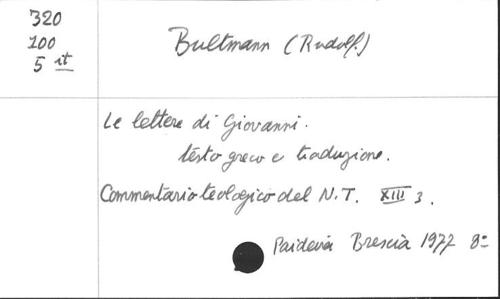 320
100
5 it
Bultmann (Rudolf.)
Le lettere di Giovanni.
testo greco e traduzione.
Commentario teologico del N.T. XIII 3.
Paideia Brescia 1977 8º